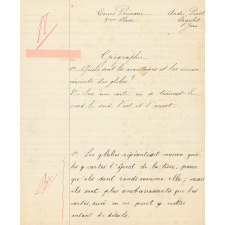 Cours Primaire
2ème Classe
André
Jura
Géographie
1° Quels sont les avantages et les inconvénients des globes ?
2° Sur une carte où se trouvent le nord le sud l'est et l'ouest.
1° Les globes représentent mieux que les cartes l'aspect de la terre, parce qu'ils sont ronds comme elle ; mais ils sont plus embarrassants que les cartes, aussi on ne peut y mettre autant de détails.